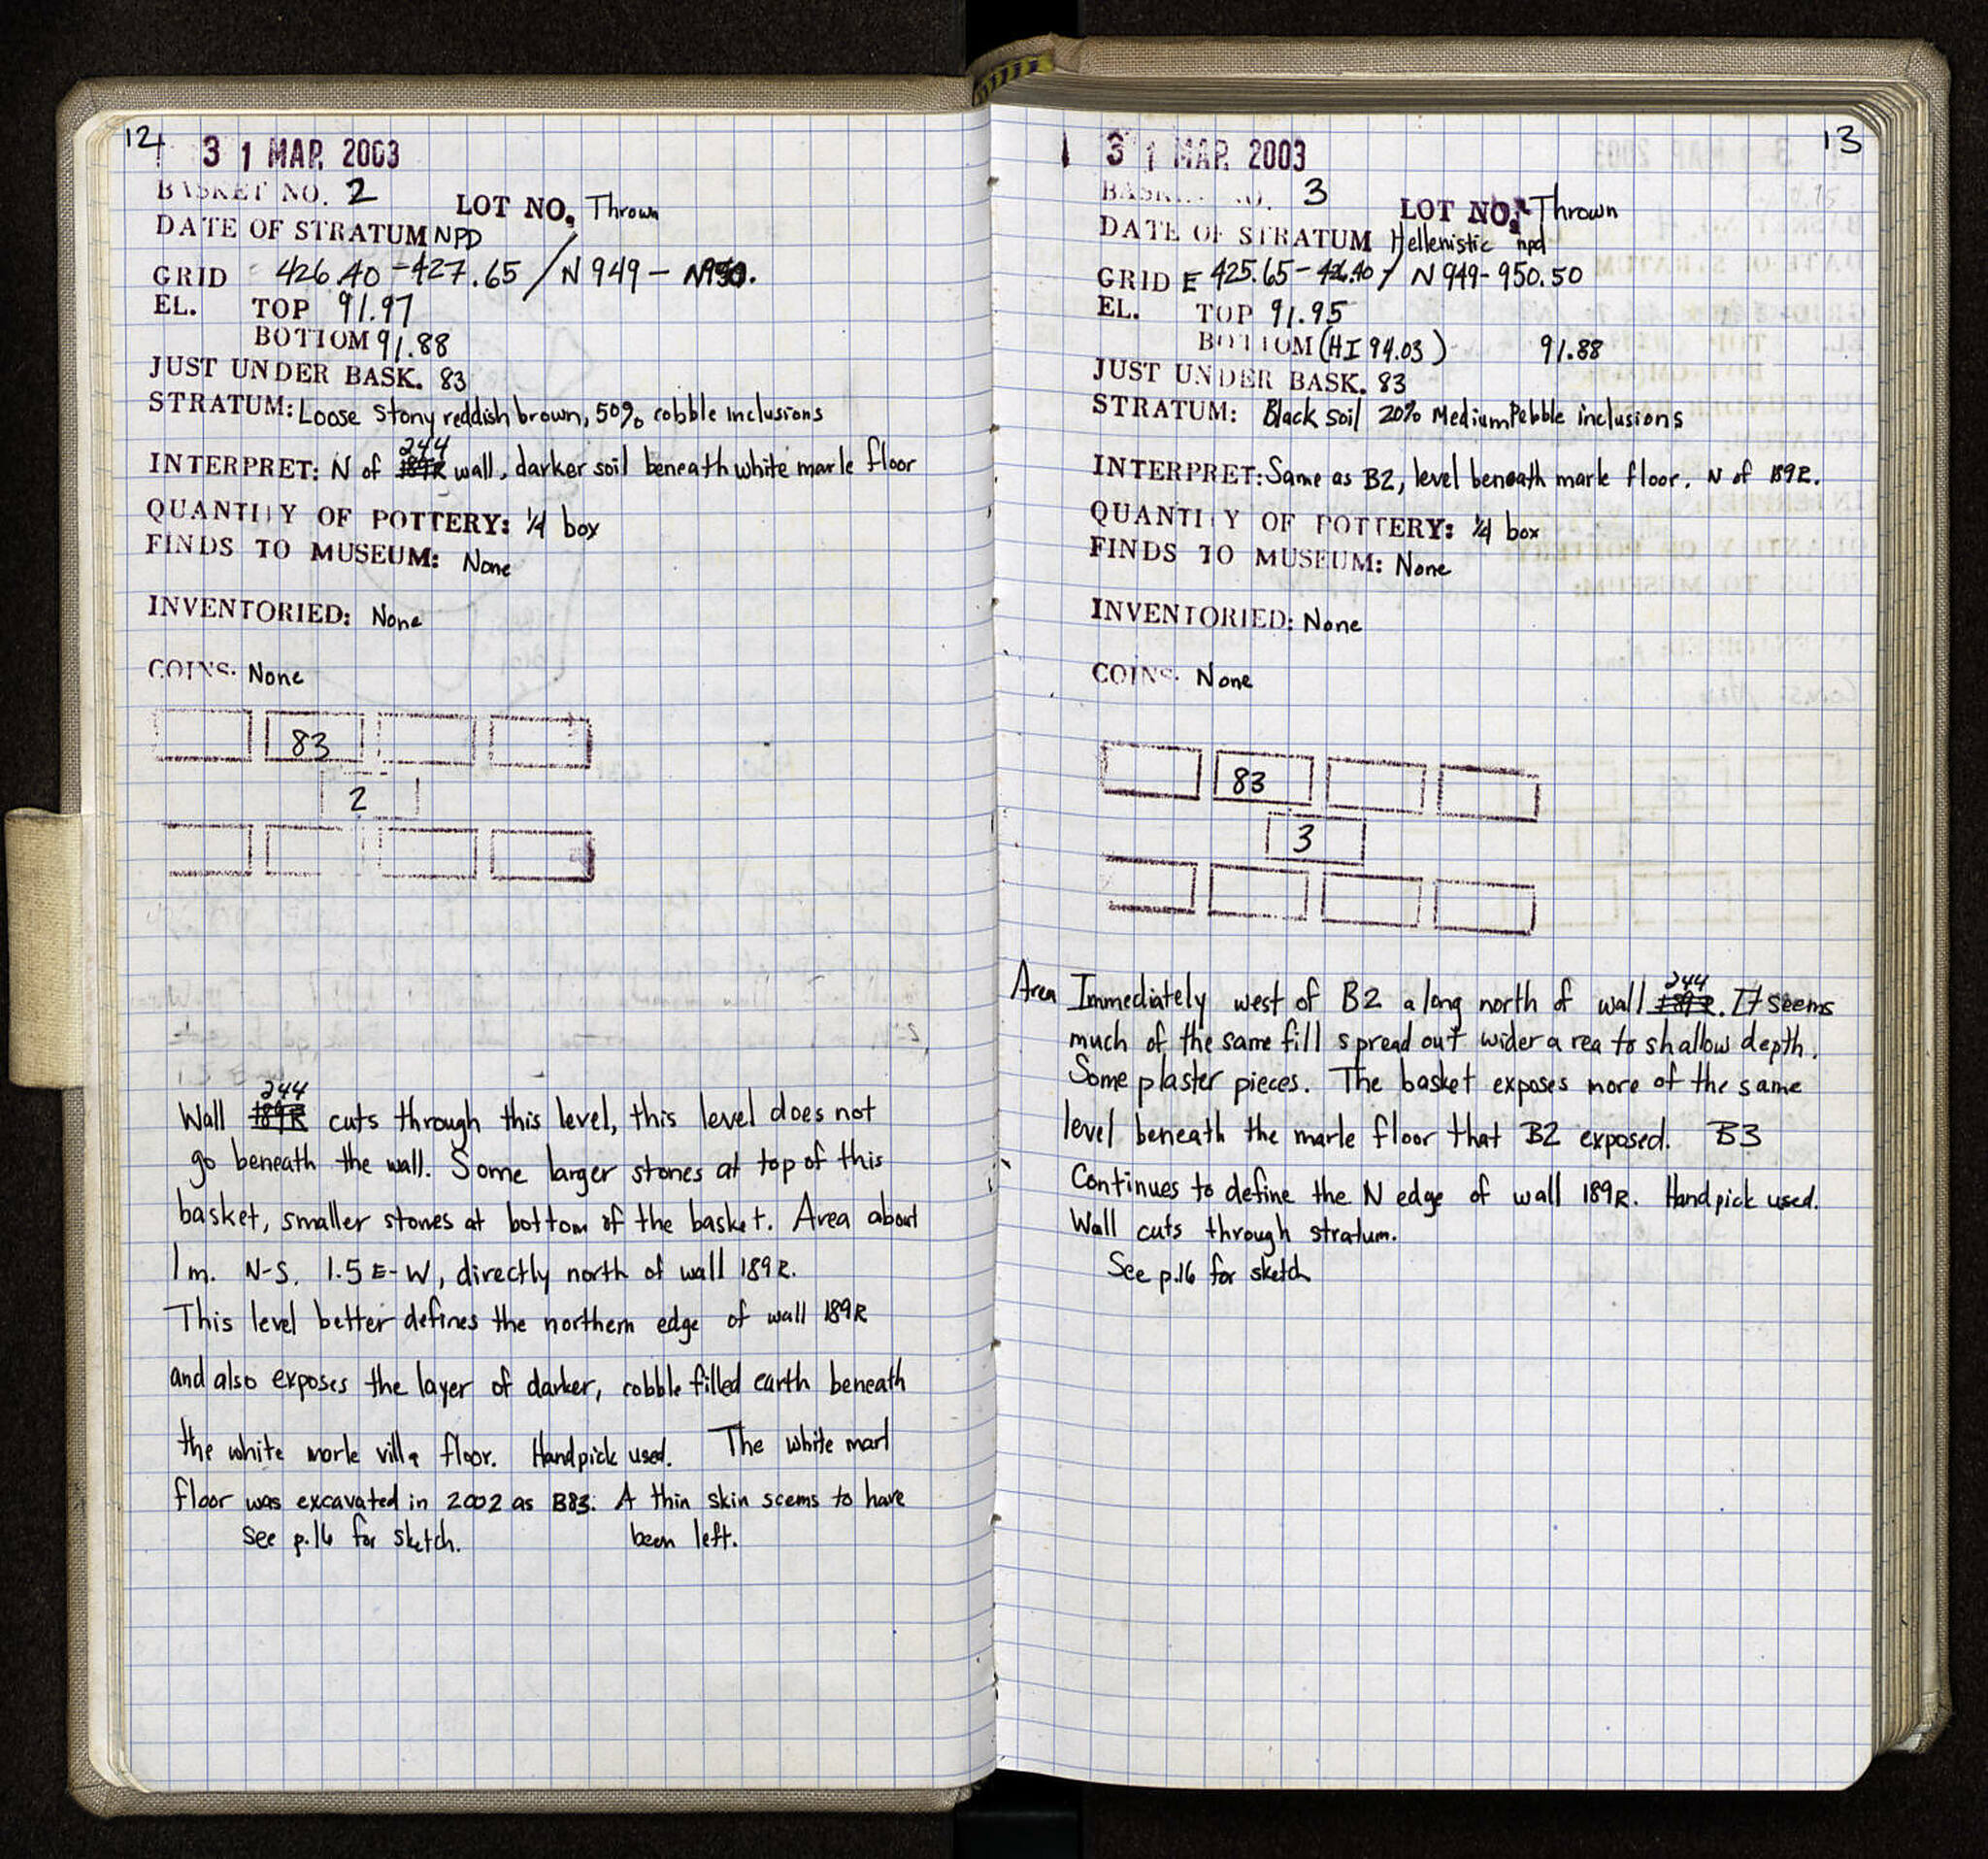 12
31 MAR. 2003
BASKET NO. 2
LOT NO. Thrown
DATE OF STRATUM NPD
GRID 426.40-427.65 / N 949 - N950.
EL. TOP 91.97
BOTTOM 91.88
JUST UNDER BASK. 83
STRATUM: Loose Stony reddish brown, 50% cobble inclusions
244
INTERPRET: N of 189R wall, darker soil beneath white marle floor
QUANTITY OF POTTERY: 1/4 box
FINDS TO MUSEUM: None
INVENTORIED: None
COINS: None
83
2
244
Wall 189R cuts through this level, this level does not
go beneath the wall. Some larger stones at top of this
basket, smaller stones at bottom of the basket. Area about
1m. N-S. 1.5 E-W, directly north of wall 189R.
This level better defines the northern edge of wall 189R
and also exposes the layer of darker, cobble filled earth beneath
the white marle villa floor. Handpick used. The white marl
floor was excavated in 2002 as B83. A thin skin seems to have
see p.16 for sketch. been left.
13
31 MAR. 2003
BASKET NO. 3
LOT NO. Thrown
DATE OF STRATUM Hellenistic npd
GRID E 425.65-426.40 / N 949-950.50
EL. TOP 91.95
BOTTOM (HI 94.03) 91.88
JUST UNDER BASK. 83
STRATUM: Black soil 20% Medium Pebble inclusions
INTERPRET: Same as B2, level beneath marle floor. N of 189R.
QUANTITY OF POTTERY: 1/4 box
FINDS TO MUSEUM: None
INVENTORIED: None
COINS: None
83
3
244
Area Immediately west of B2 along north of wall 189R. It seems
much of the same fill spread out wider area to shallow depth.
Some plaster pieces. The basket exposes more of the same
level beneath the marle floor that B2 exposed. B3
Continues to define the N edge of wall 189R. Handpick used.
Wall cuts through stratum.
See p.16 for sketch